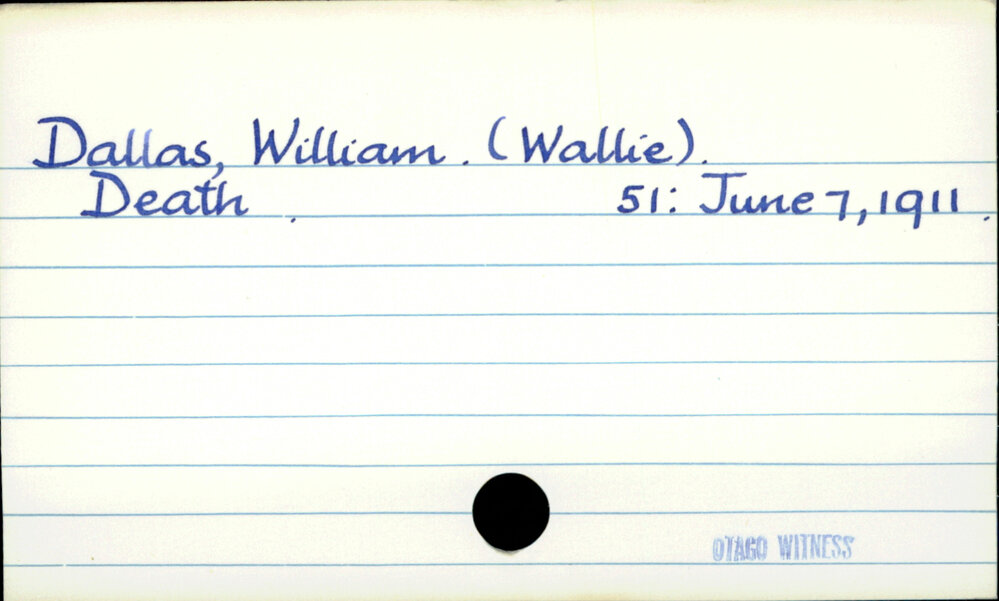 Dallas, William. (Wallie).
Death. 51: June 7, 1911.
OTAGO WITNESS